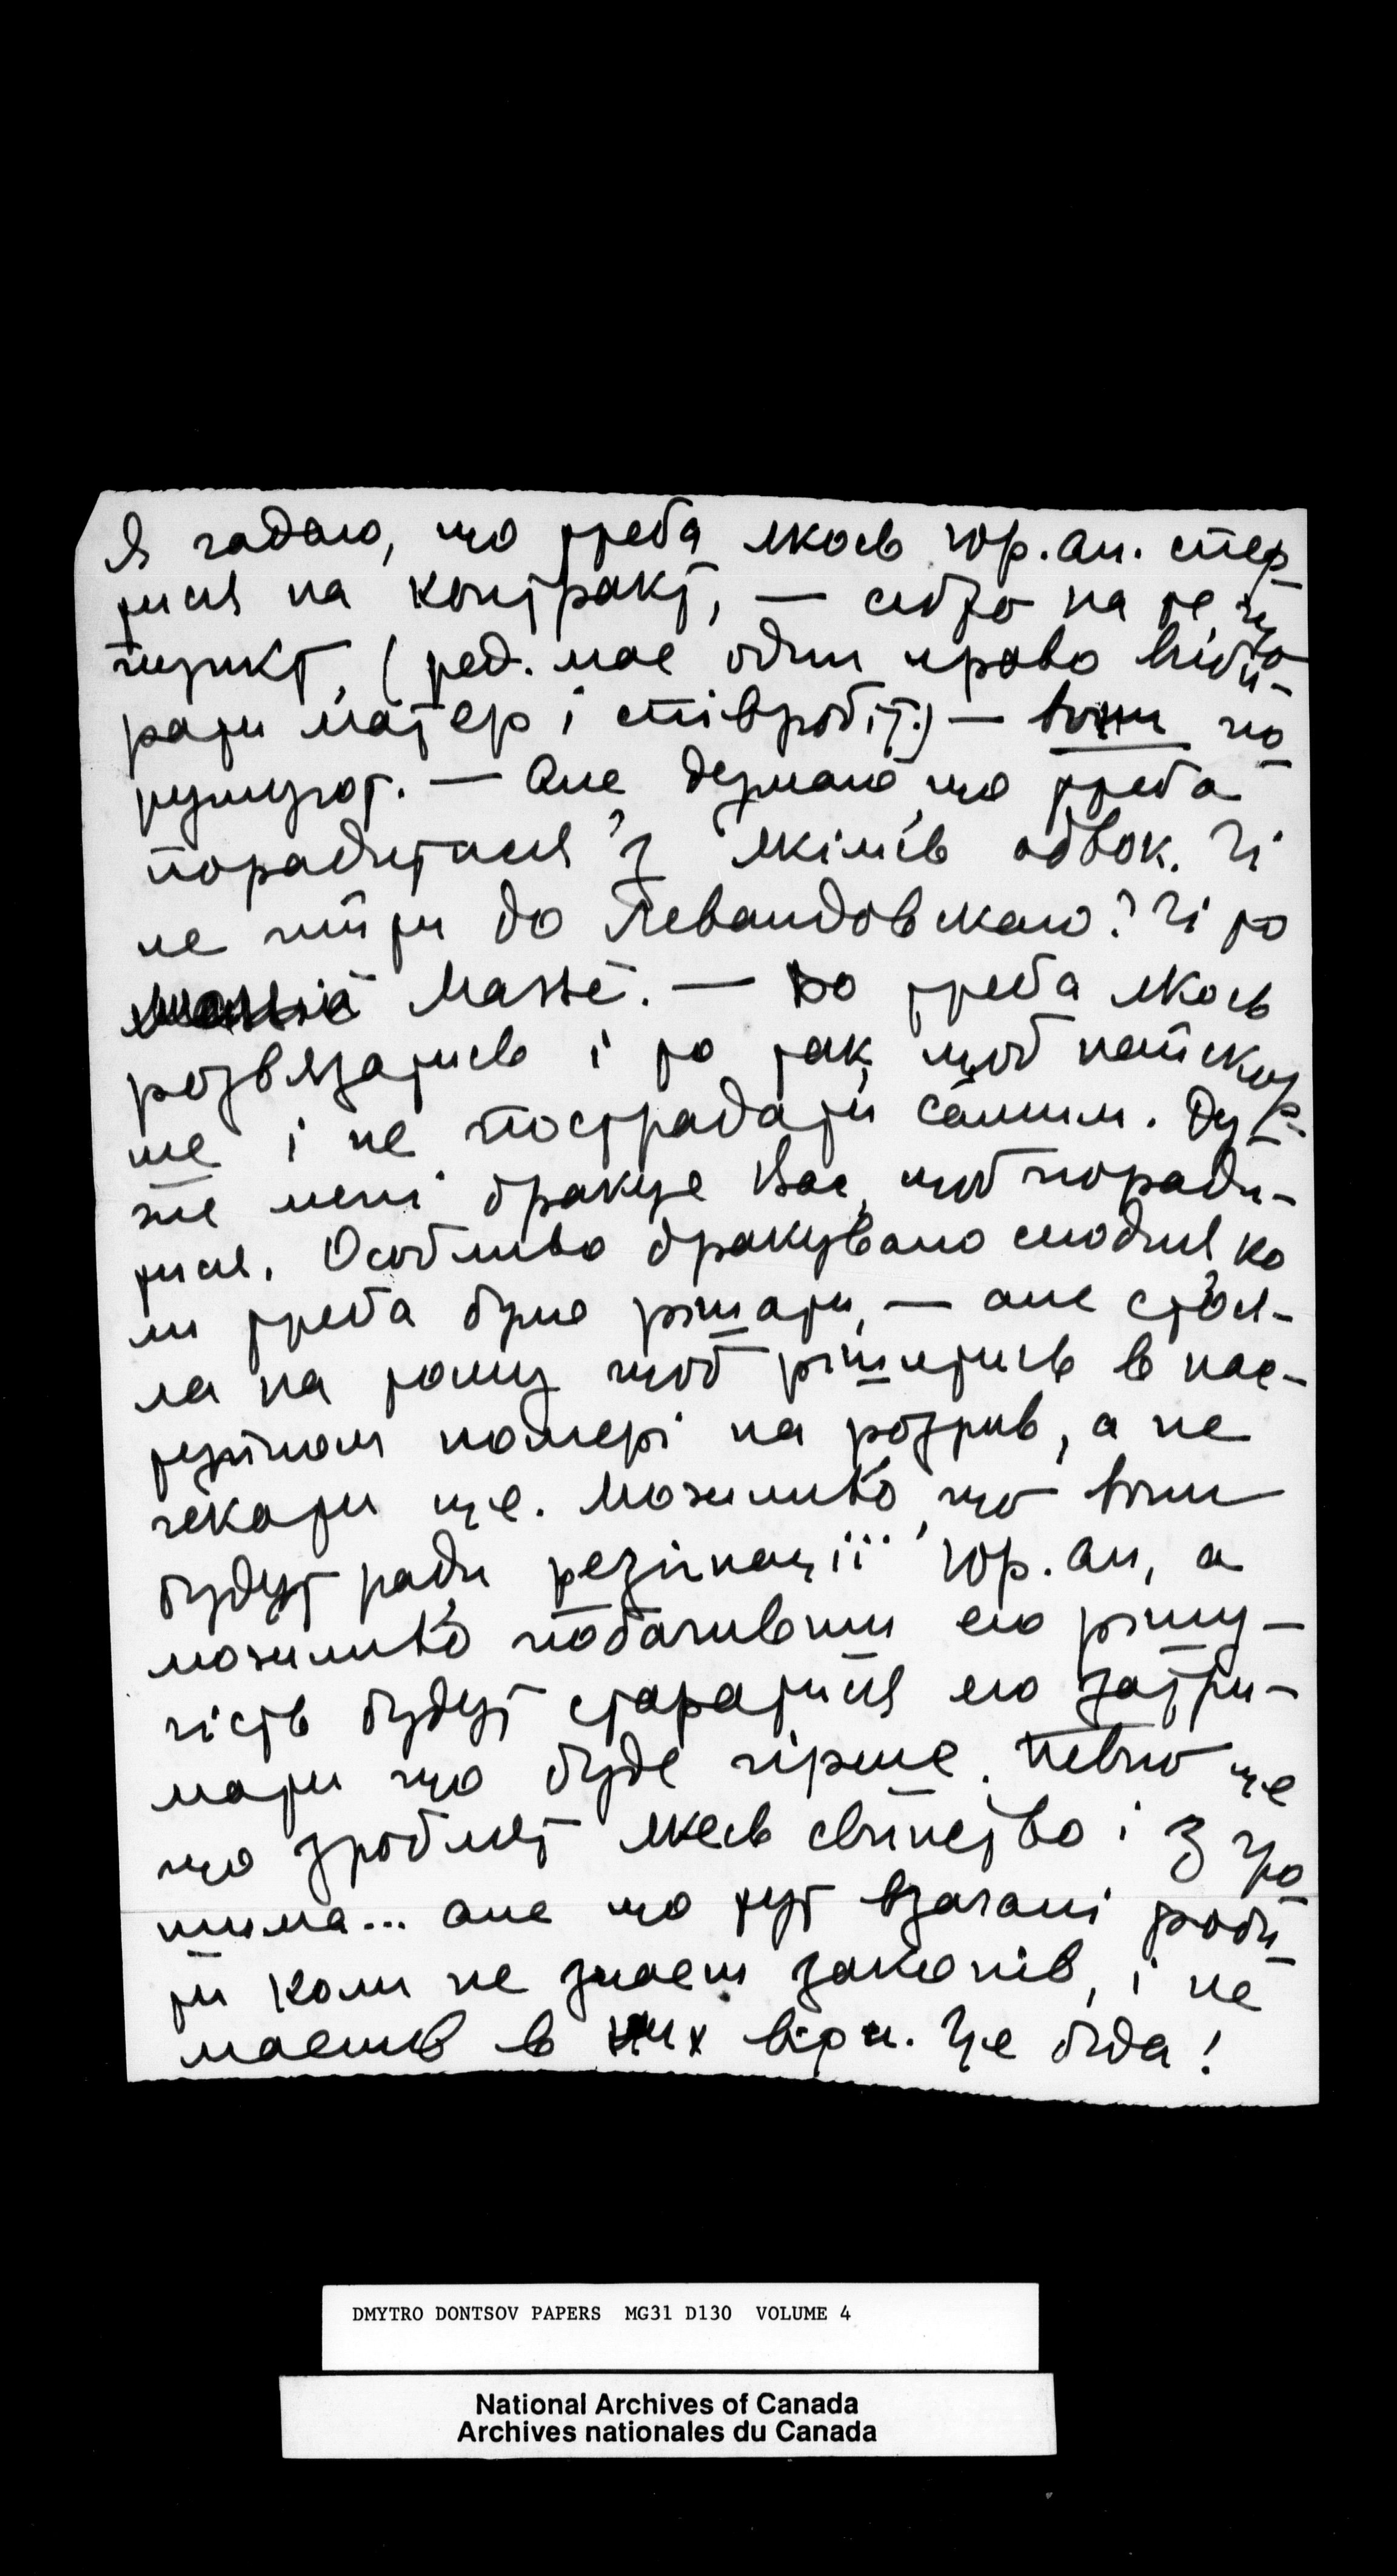 Я гадаю, що треба якось Юр. Ан. спер-
тися на контракт, — себто на те, що
пункт, (ред. має один право виби-
рати матер і співробіт.) — вони по
рушують. — Але думаю, що треба
порадитися з якімсь адвок. Чі
не піти до Левандовского? Чі до
Massé. — Бо треба якось
розвязатись і то так, щоб найскор-
ше і не пострадати самим. Ду-
же мені бракує Вас, щоб поради-
тися. Особливо бракувало сьодня, ко
ли треба було рішати, — але стоя-
ла на тому щоб рішитись в нас-
тупном номері на розрив, а не
чекати ще. Можливо, що вони
будут ради резігнації Юр. Ан, а
можливо побачивши его рішу-
чість будут старатися его затри-
мати що буде гірше. Певно ще
що зроблят якесь свинство і з гро
шима... але що тут взагалі роби-
ти коли не знаєш законів, і не
маєшь в них віри. Це біда!
DMYTRO DONTSOV PAPERS MG31 D130 VOLUME 4
National Archives of Canada
Archives nationales du Canada